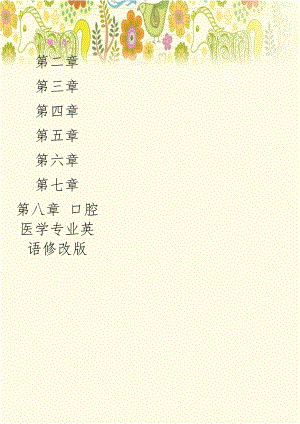 第二章
第三章
第四章
第五章
第六章
第七章
第八章 口腔
医学专业英
语修改版